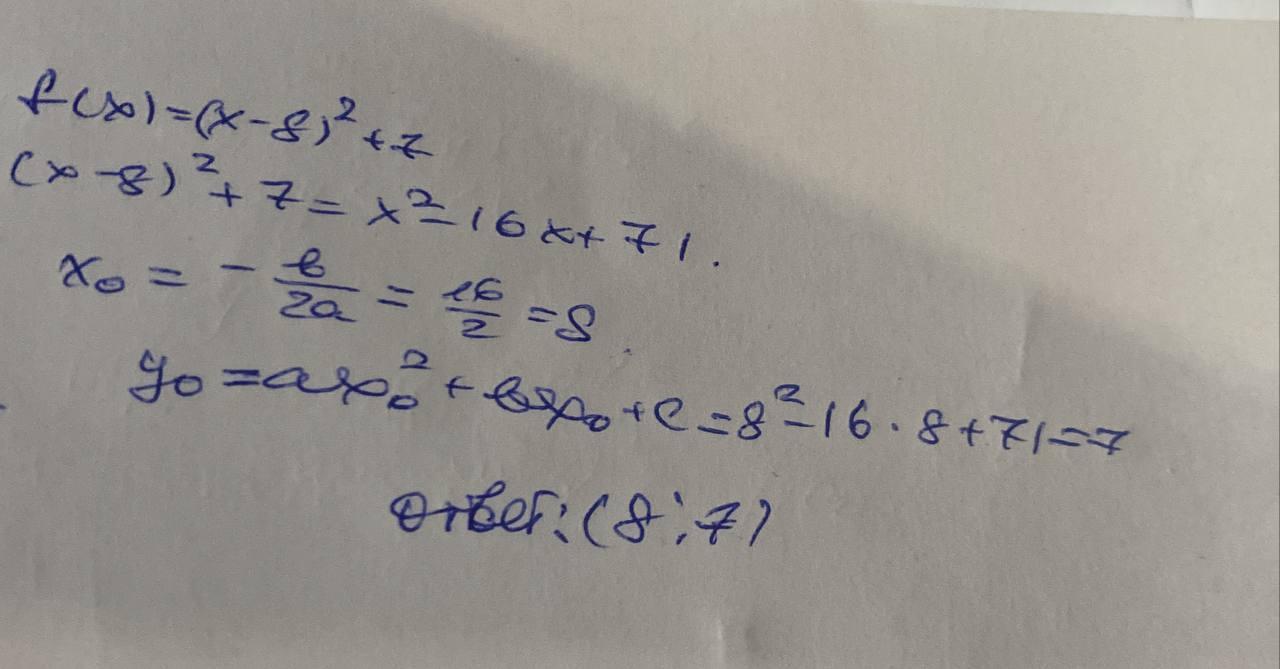 f(x)=(x-8)²+7
(x-8)²+7=x²-16x+71.
x₀ = -в/2a = 16/2 =8.
y₀=ax₀²+вx₀+c=8²-16·8+71=7
Ответ: (8;7)